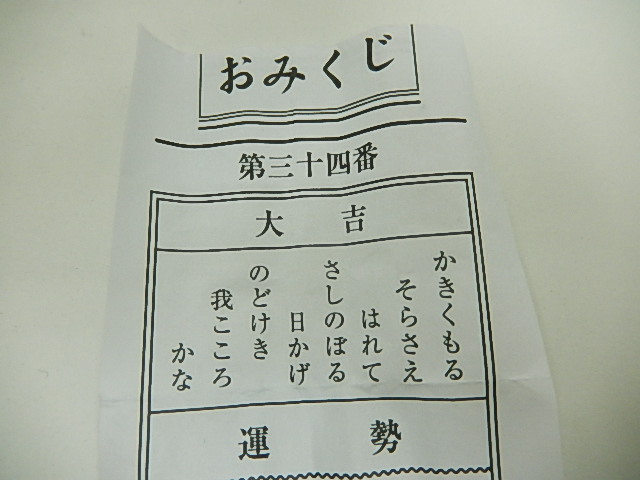 おみくじ
第三十四番
大吉
かきくもる
そらさえ
はれて
さしのぼる
日かげ
のどけき
我こころ
かな
運勢